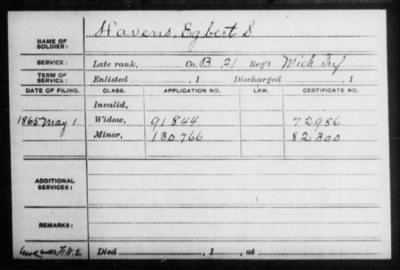 Havens, Egbert S
NAME OF SOLDIER:
SERVICE: Late rank, Co. B, 21 Reg't Mich Inf
TERM OF SERVICE: Enlisted , 1 Discharged , 1
DATE OF FILING. CLASS. APPLICATION NO. LAW. CERTIFICATE NO.
Invalid,
1865 May 1 Widow, 91.844 72986
Minor, 130.766 82.300
ADDITIONAL SERVICES:
REMARKS:
Died , 1 , at